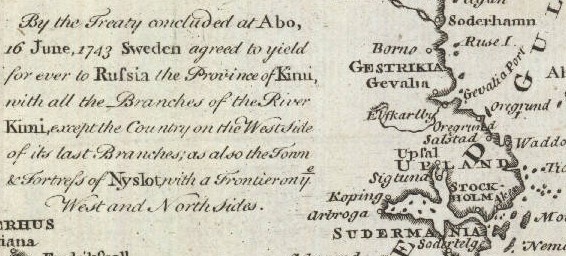 By the Treaty concluded at Abo,
16 June, 1743 Sweden agreed to yield
for ever to Ruſsia the Province of Kimi,
with all the Branches of the River
Kimi, except the Country on the West Side
of its last Branches; as also the Town
& Fortreſs of Nyslot, with a Frontier on yᵉ
West and North Sides.
Soderhamn
Ruse I.
Borno
GESTRIKIA
Gevalia
Gevalia Port
GUL
Elfkarlby
Oregrund
Oregrund
Salstad
Waddo
Upſal
UPLAND
Sigtuna
STOCK-
HOLM
Koping
Arbroga
SUDERMANIA
Sodertelge
ERHUS
iana